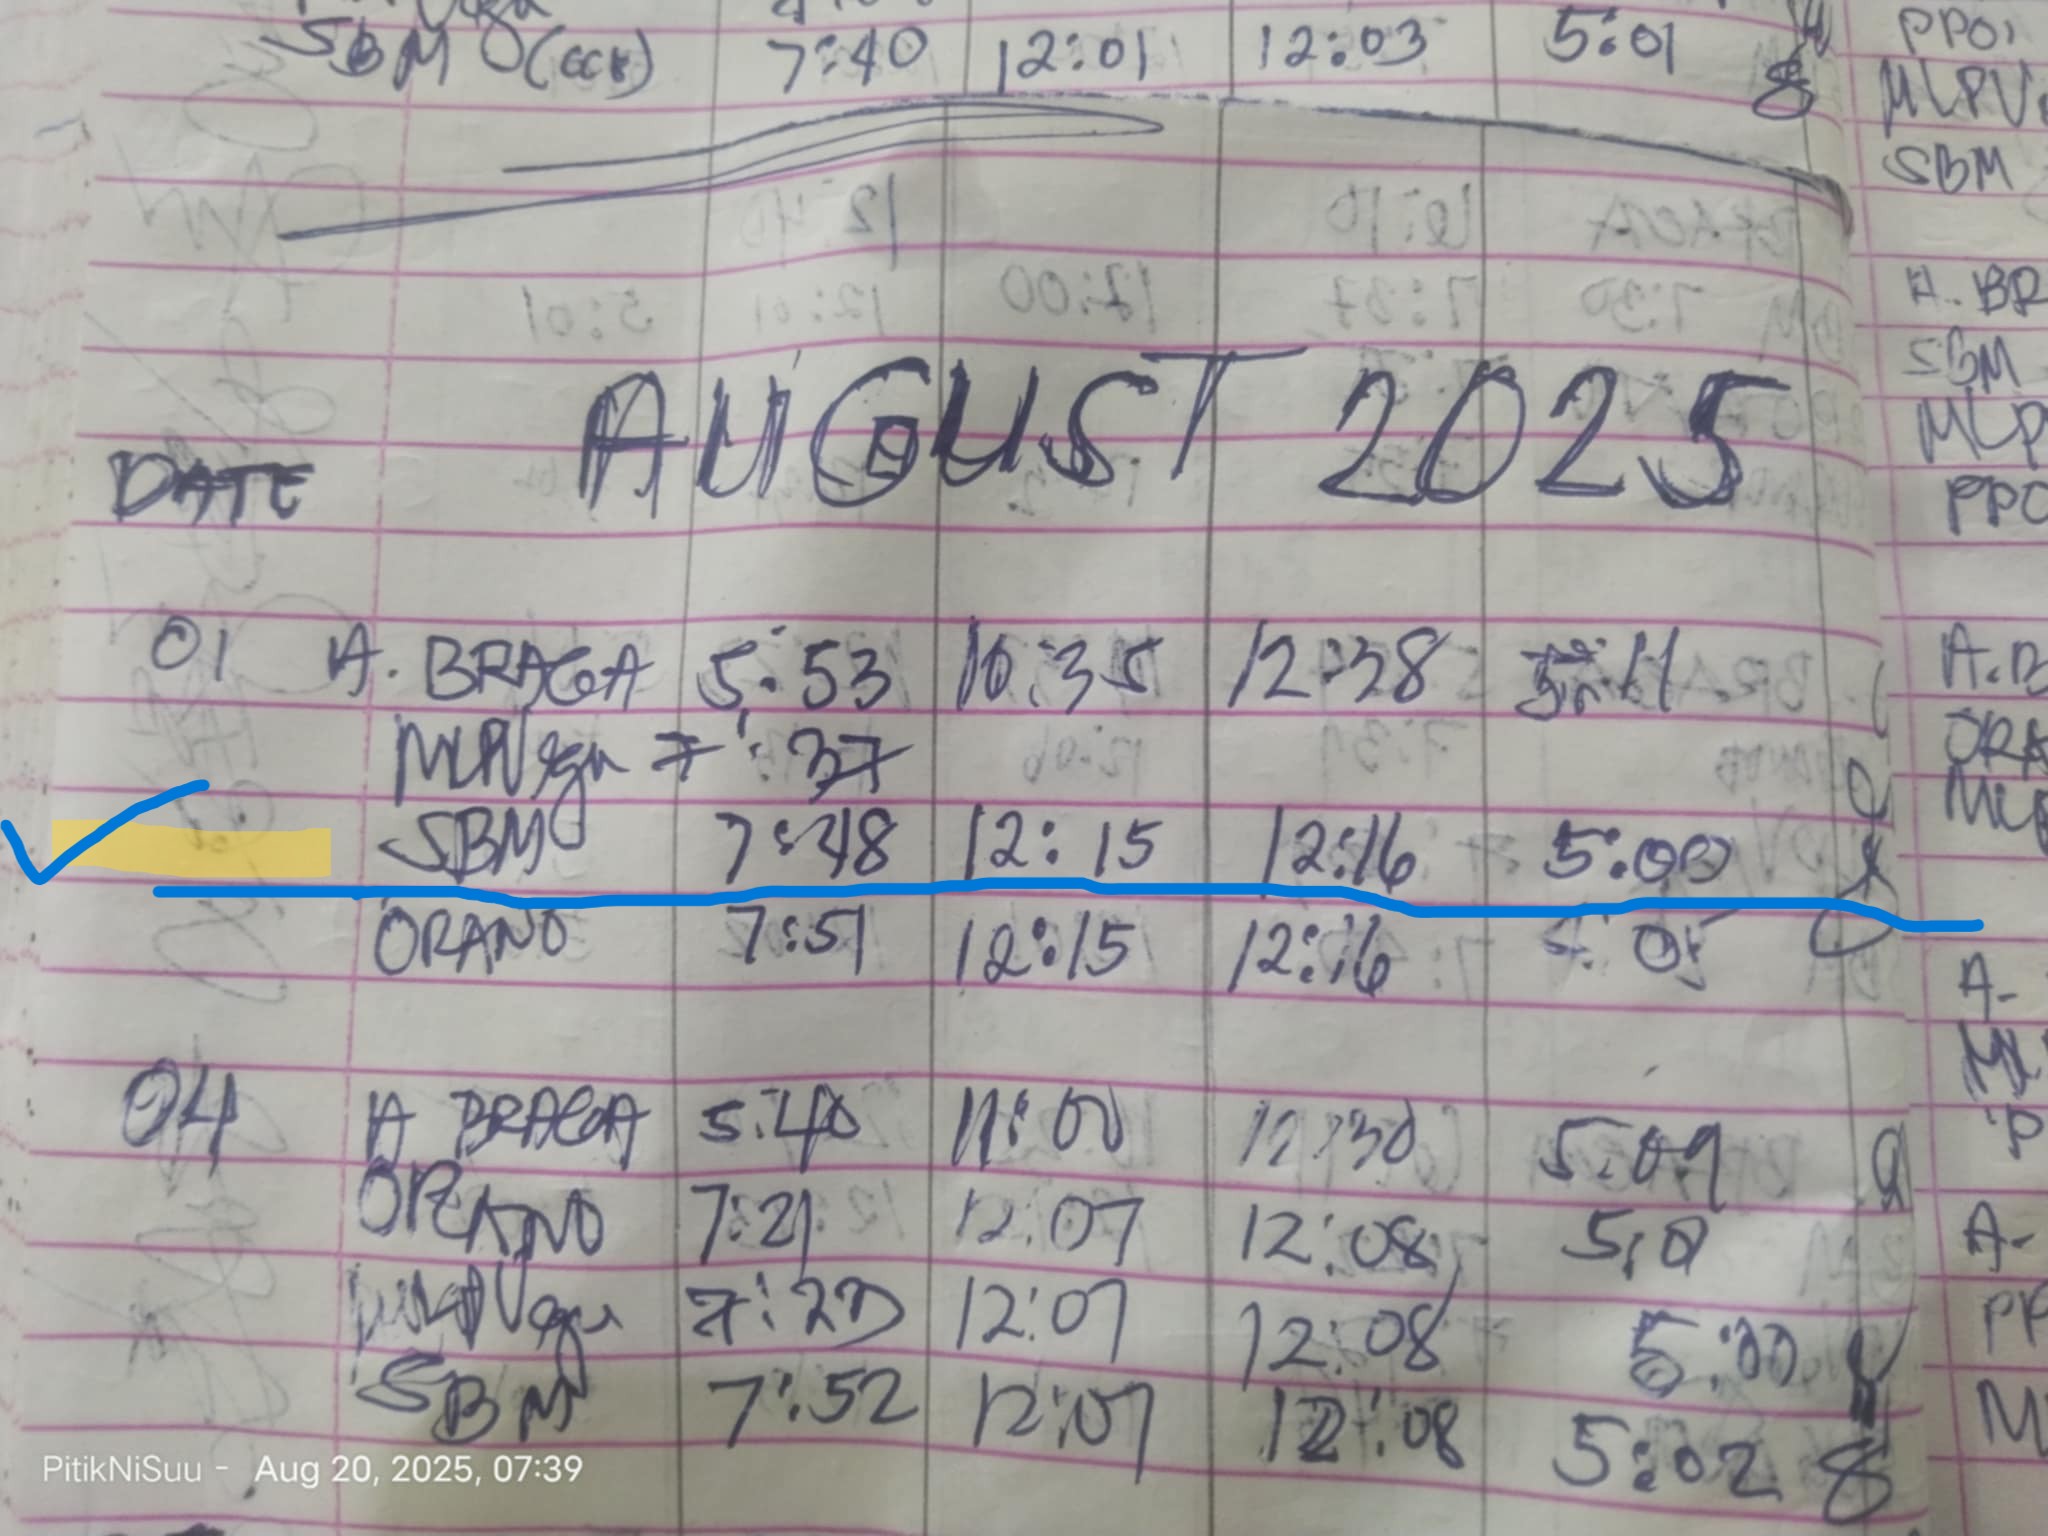 SBM (CCK) 7:40 12:01 12:03 5:01
PPO
MLPV
SBM
A. BR
SBM
MLP
PPO
AUGUST 2025
DATE
01 A. BRAGA 5:53 10:35 12:38 5:11
MLPVega 7:37
SBM 7:48 12:15 12:16 5:00
ORANO 7:51 12:15 12:16
04 A BRAGA 5:40 11:00 12:30 5:09
ORANO 7:21 12:07 12:08 5:0
MLPVega 12:07 12:08 5:00
SBM 7:52 12:07 12:08 5:02
A.B
ORA
A-
ML
P
A-
PP
M
PitikNiSuu - Aug 20, 2025, 07:39